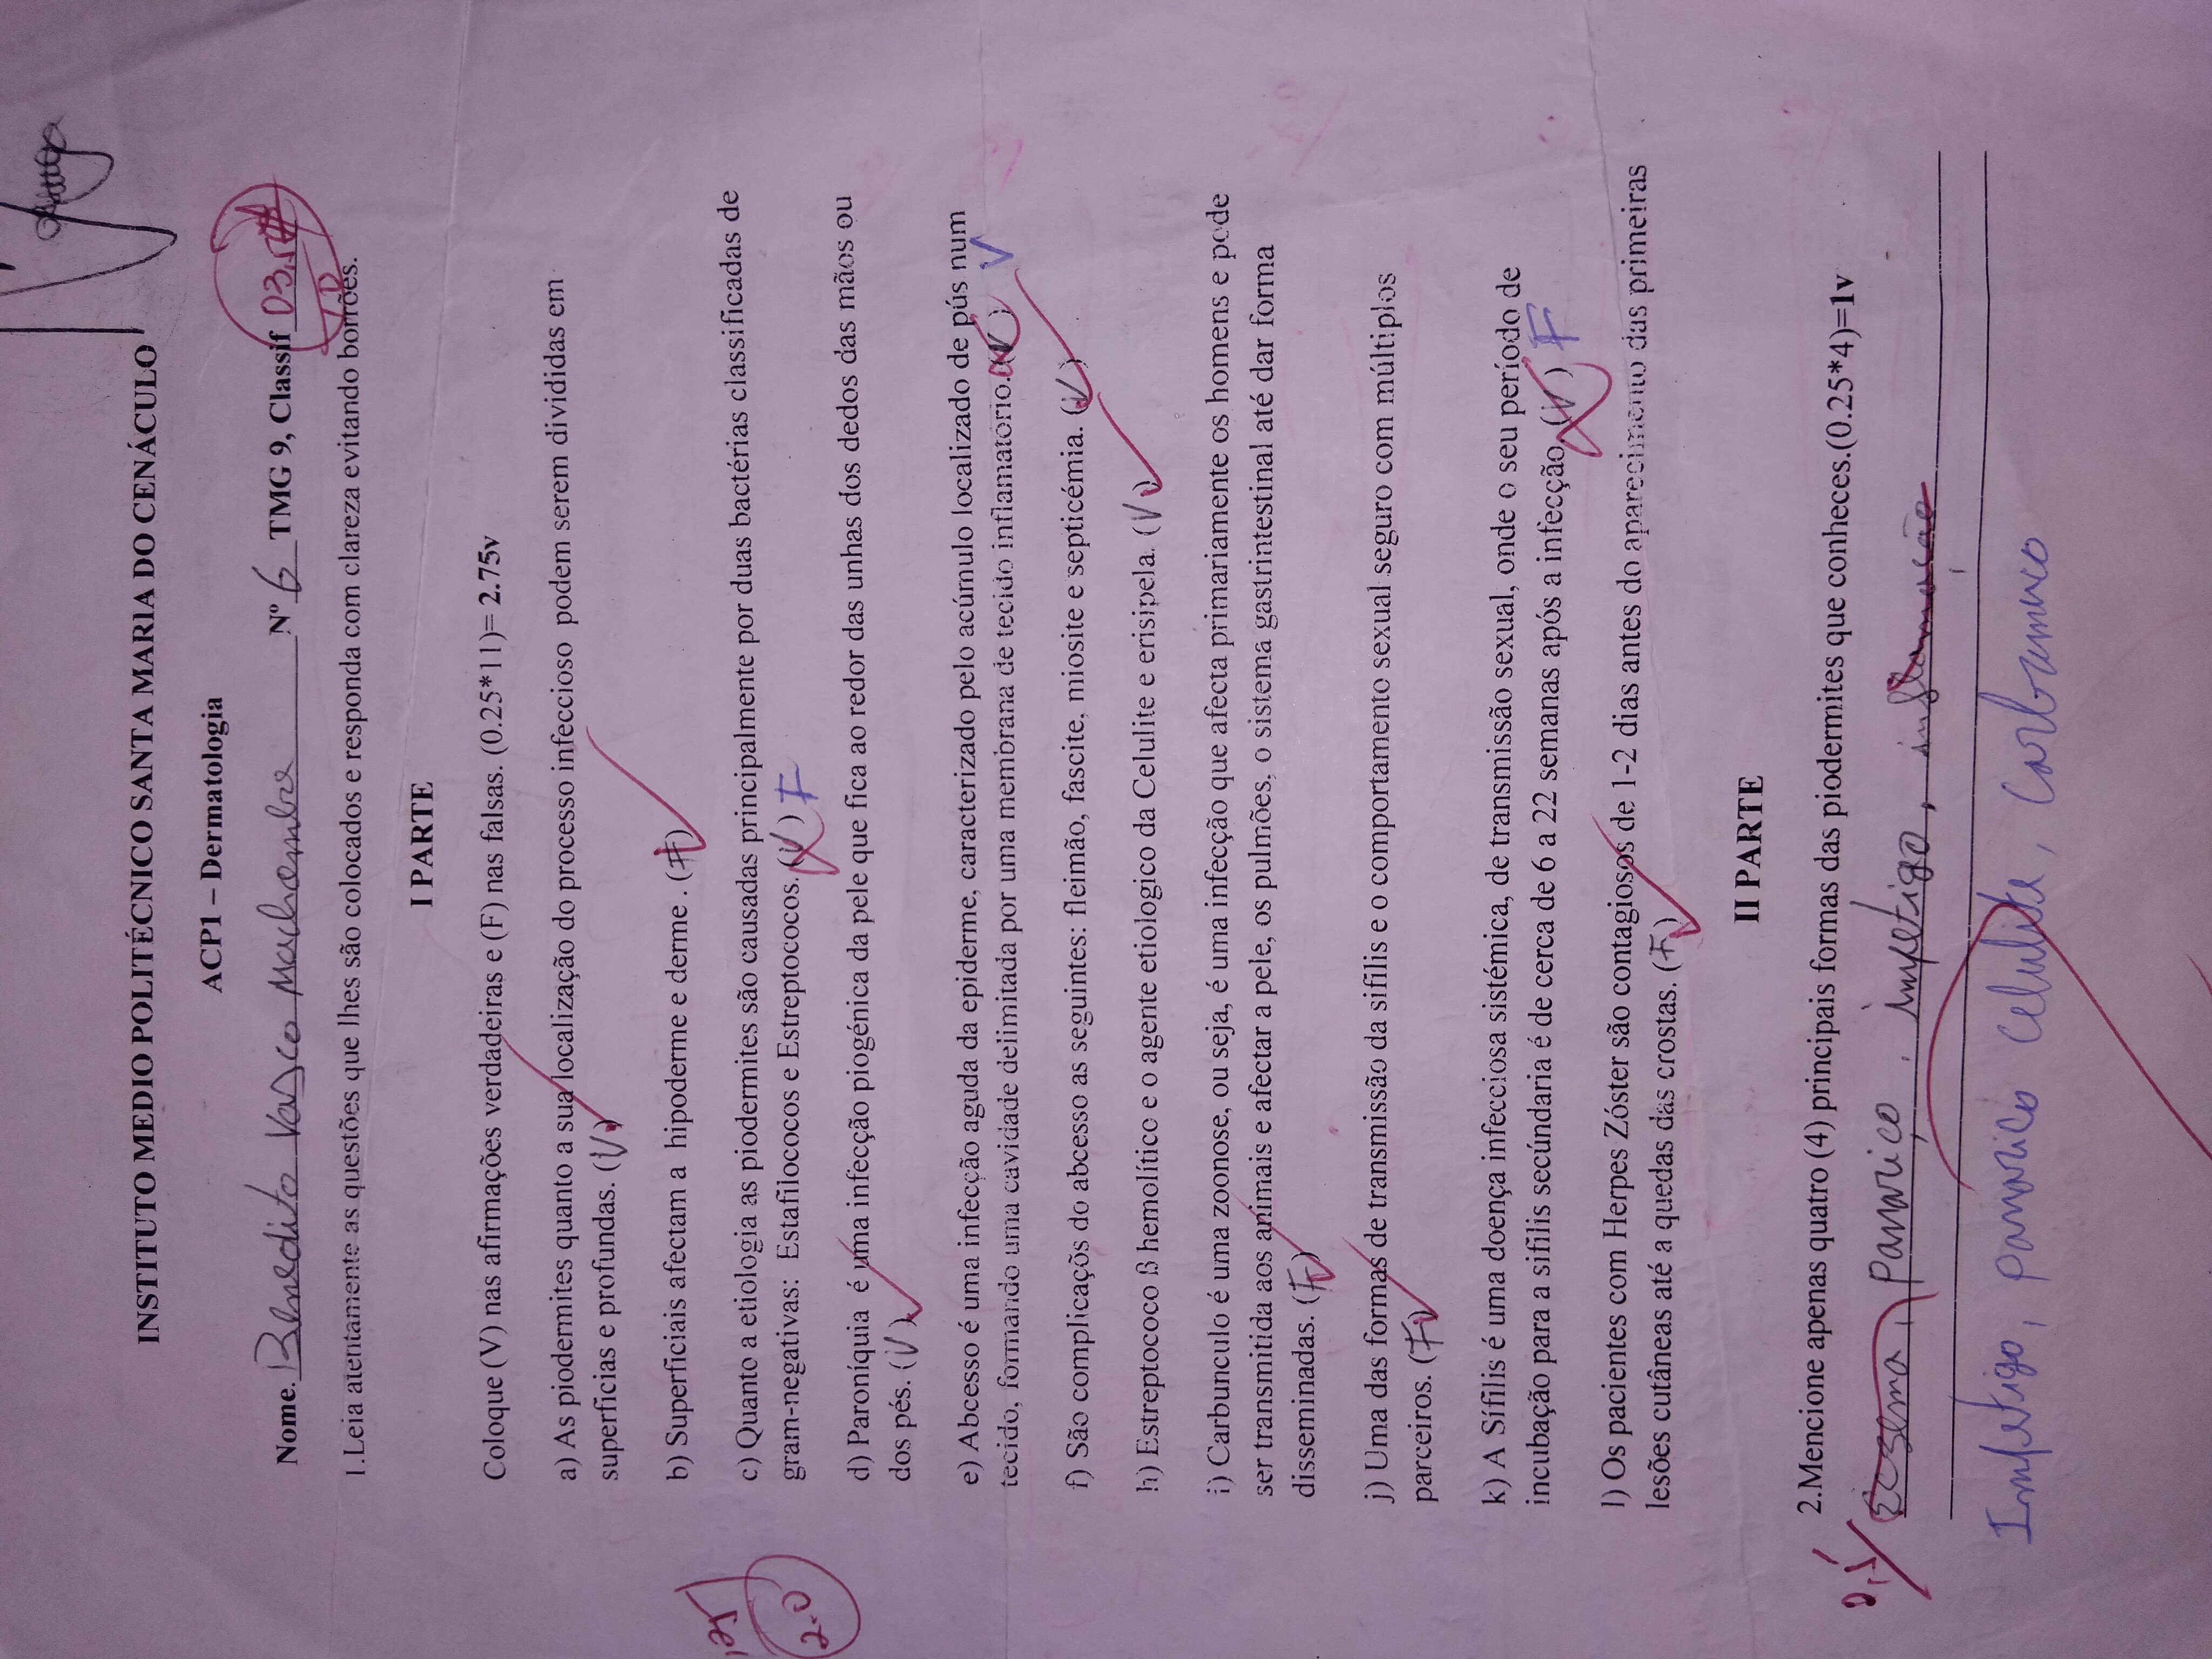 INSTITUTO MEDIO POLITÉCNICO SANTA MARIA DO CENÁCULO
ACP1 – Dermatologia
Nome. Benedito Vasco Machambre Nº 6 TMG 9, Classif 03,5
1.Leia atentamente as questões que lhes são colocados e responda com clareza evitando borrões.
I PARTE
Coloque (V) nas afirmações verdadeiras e (F) nas falsas. (0.25*11)= 2.75v
a) As piodermites quanto a sua localização do processo infeccioso podem serem divididas em
superficias e profundas. (V)
b) Superficiais afectam a hipoderme e derme . (F)
c) Quanto a etiologia as piodermites são causadas principalmente por duas bactérias classificadas de
gram-negativas: Estafilococos e Estreptococos. (V) F
2.0
d) Paroníquia é uma infecção piogénica da pele que fica ao redor das unhas dos dedos das mãos ou
dos pés. (V)
e) Abcesso é uma infecção aguda da epiderme, caracterizado pelo acúmulo localizado de pús num
tecido, formando uma cavidade delimitada por uma membrana de tecido inflamatório. (V) V
f) São complicaçõs do abcesso as seguintes: fleimão, fascite, miosite e septicémia. (V)
h) Estreptococo ß hemolítico e o agente etiologico da Celulite e erisipela. (V)
i) Carbunculo é uma zoonose, ou seja, é uma infecção que afecta primariamente os homens e pode
ser transmitida aos animais e afectar a pele, os pulmões, o sistema gastrintestinal até dar forma
disseminadas. (F)
j) Uma das formas de transmissão da sifilis e o comportamento sexual seguro com múltiplos
parceiros. (F)
k) A Sífilis é uma doença infecciosa sistémica, de transmissão sexual, onde o seu período de
incubação para a sifilis secúndaria é de cerca de 6 a 22 semanas após a infecção. (V) F
l) Os pacientes com Herpes Zóster são contagiosos de 1-2 dias antes do aparecimento das primeiras
lesões cutâneas até a quedas das crostas. (F)
II PARTE
2.Mencione apenas quatro (4) principais formas das piodermites que conheces.(0.25*4)=1v
0,5
Eczema, panariço, impetigo, inflamação
Impetigo, panarico celulite, Carbunuco